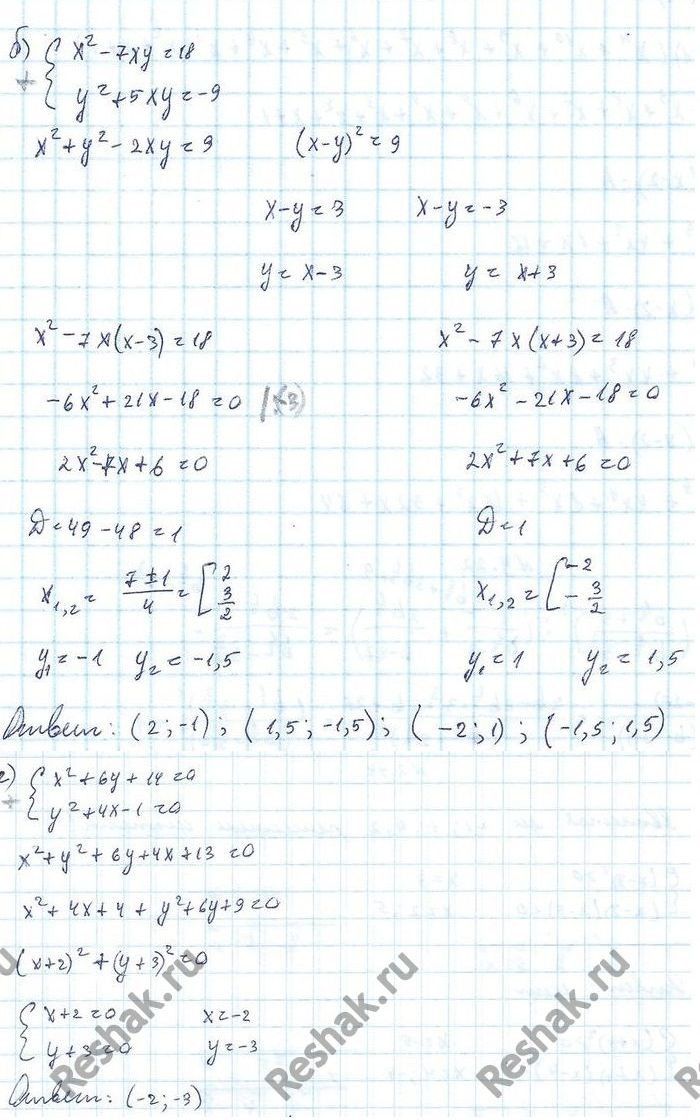 б) { x² - 7xy = 18
+ { y² + 5xy = -9
x² + y² - 2xy = 9 (x-y)² = 9
x - y = 3 x - y = -3
y = x - 3 y = x + 3
x² - 7x(x-3) = 18 x² - 7x(x+3) = 18
-6x² + 21x - 18 = 0 |(-3) -6x² - 21x - 18 = 0
2x² - 7x + 6 = 0 2x² + 7x + 6 = 0
D = 49 - 48 = 1 D = 1
x₁,₂ = (7±1)/4 = [2; 3/2 x₁,₂ = [-2; -3/2
y₁ = -1 y₂ = -1,5 y₁ = 1 y₂ = 1,5
Ответ: (2;-1); (1,5;-1,5); (-2;1); (-1,5;1,5)
г) { x² + 6y + 14 = 0
+ { y² + 4x - 1 = 0
x² + y² + 6y + 4x + 13 = 0
x² + 4x + 4 + y² + 6y + 9 = 0
(x+2)² + (y+3)² = 0
{ x + 2 = 0 x = -2
{ y + 3 = 0 y = -3
Ответ: (-2;-3)
Reshak.ru
Reshak.ru
Reshak.ru